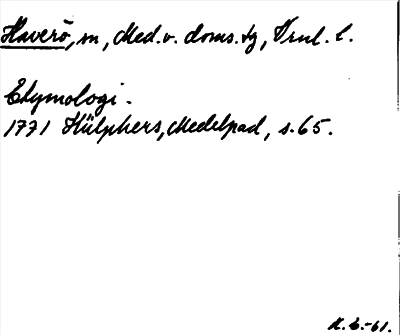 Haverö, sn, Med. v. doms. tg, Vrnl. l.
Etymologi.
1771 Hülphers, Medelpad, s. 65.
K. L. -61.